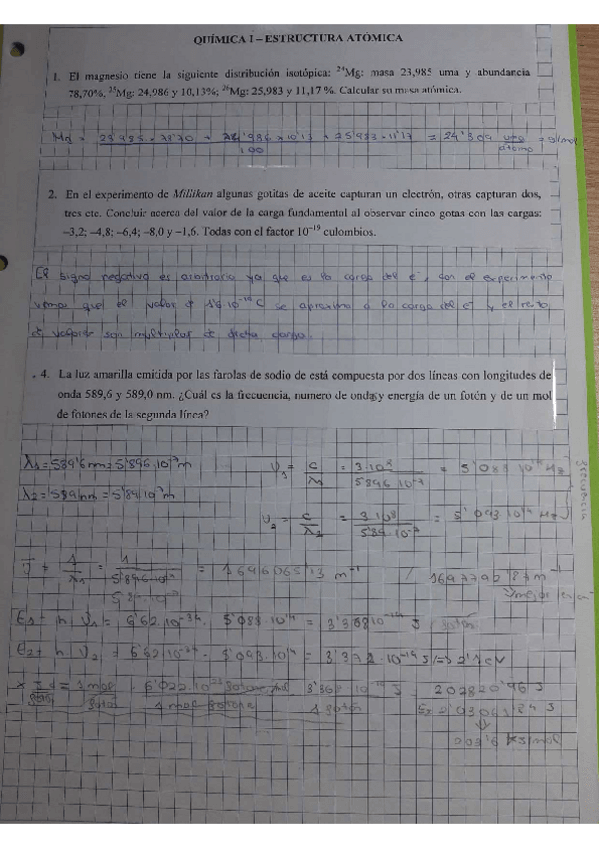 QUÍMICA I – ESTRUCTURA ATÓMICA
1. El magnesio tiene la siguiente distribución isotópica: ²⁴Mg: masa 23,985 uma y abundancia
78,70%, ²⁵Mg: 24,986 y 10,13%; ²⁶Mg: 25,983 y 11,17 %. Calcular su masa atómica.
23'985 · 78'70 + 24'986 · 10'13 + 25'983 · 11'17 = 24'309
100
2. En el experimento de Millikan algunas gotitas de aceite capturan un electrón, otras capturan dos,
tres etc. Concluir acerca del valor de la carga fundamental al observar cinco gotas con las cargas:
–3,2; –4,8; –6,4; –8,0 y –1,6. Todas con el factor 10⁻¹⁹ culombios.
El signo negativo es arbitrario ya que es la carga del e⁻, con el experimento
vemos que el valor d 1'6·10⁻¹⁹ C se aproxima a la carga del e⁻ y el resto
d valores son multiplos d dicha carga.
4. La luz amarilla emitida por las farolas de sodio de está compuesta por dos líneas con longitudes de
onda 589,6 y 589,0 nm. ¿Cuál es la frecuencia, numero de ondas y energía de un fotón y de un mol
de fotones de la segunda línea?
λ₁ = 589'6 nm = 5'896·10⁻⁷ m
ν₁ = c/λ₁ = 3·10⁸ / 5'896·10⁻⁷ = 5'088·10¹⁴ Hz
FRECUENCIA
λ₂ = 589 nm = 5'89·10⁻⁷ m
ν₂ = c/λ₂ = 3·10⁸ / 5'89·10⁻⁷ = 5'093·10¹⁴ Hz
1/λ₁ = 1 / 5'896·10⁻⁷ = 1696065'13 m⁻¹ / 1697792'87 m⁻¹
5'89·10⁻⁷
E₁ = h ν₁ = 6'62·10⁻³⁴ · 5'088·10¹⁴ = 3'368·10⁻¹⁹ J
E₂ = h ν₂ = 6'62·10⁻³⁴ · 5'093·10¹⁴ = 3'372·10⁻¹⁹ J
1 mol · 6'022·10²³ · 3'368·10⁻¹⁹ J
1 mol fotones 1 foton
KJ/mol